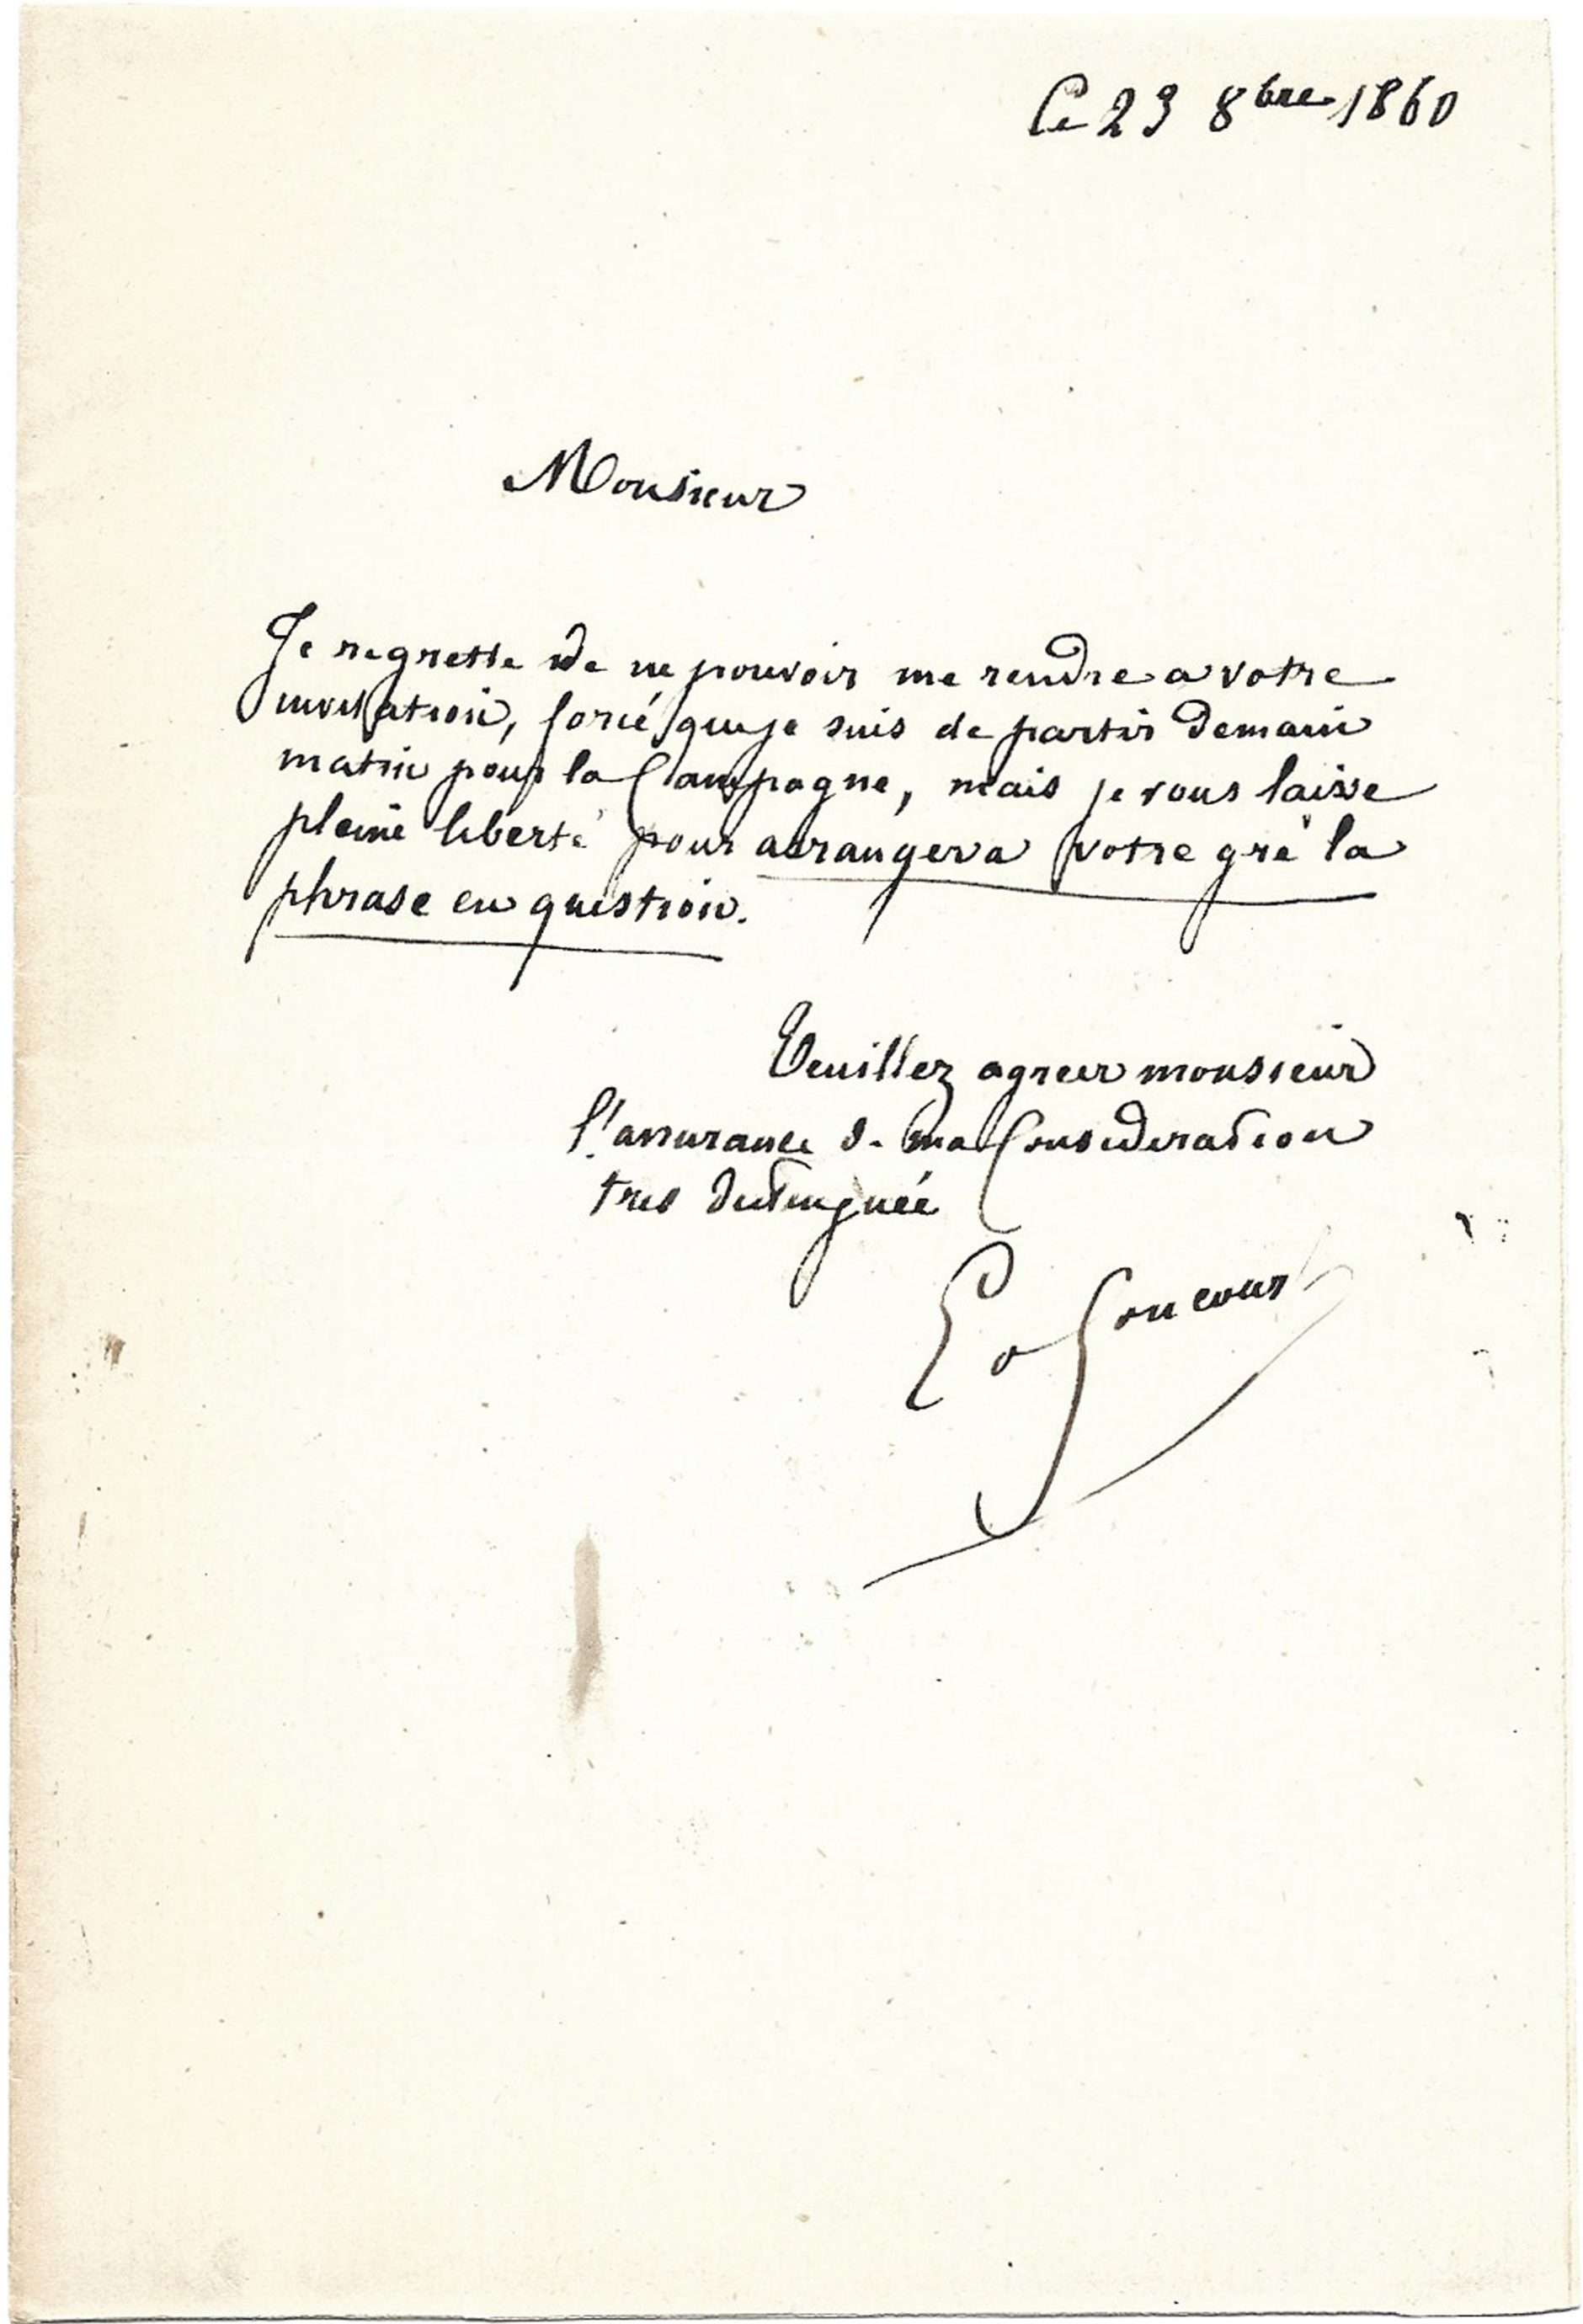 Ce 29 8bre 1860
Monsieur
Je regrette de ne pouvoir me rendre a votre
invitation, forcé que je suis de partir demain
matin pour la Campagne, mais je vous laisse
pleine liberté pour arranger a votre gré la
phrase en question.
Veuillez agreer monsieur
l'assurance de ma Consideration
tres distinguée
E de Goncourt